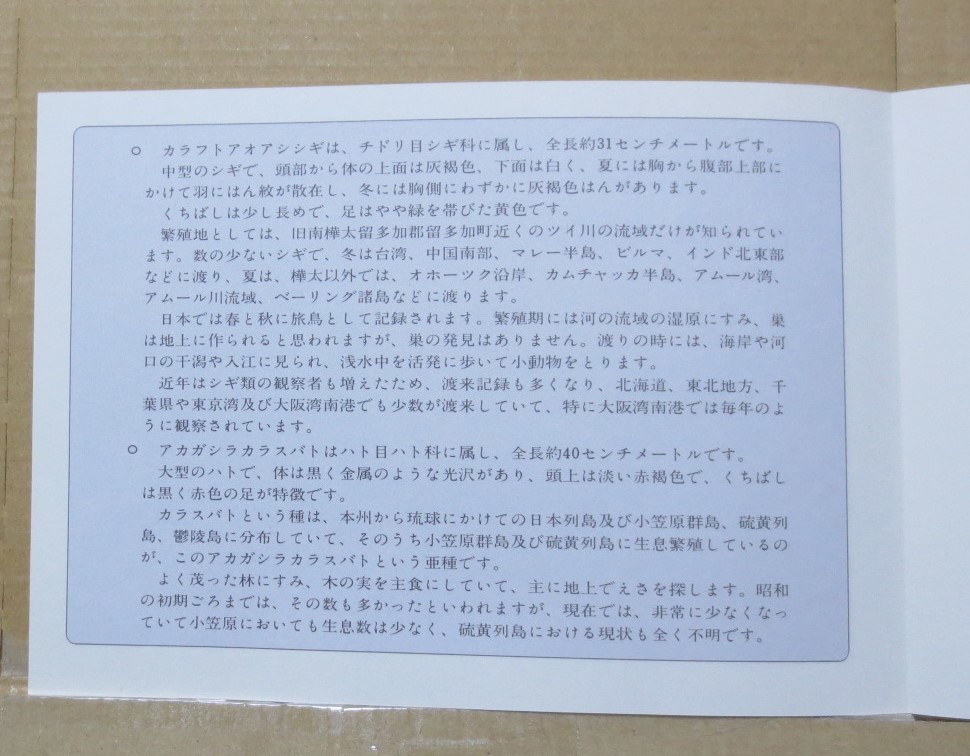 ○ カラフトアオアシシギは、チドリ目シギ科に属し、全長約31センチメートルです。
中型のシギで、頭部から体の上面は灰褐色、下面は白く、夏には胸から腹部上部に
かけて羽にはん紋が散在し、冬には胸側にわずかに灰褐色はんがあります。
くちばしは少し長めで、足はやや緑を帯びた黄色です。
繁殖地としては、旧南樺太留多加郡留多加町近くのツイ川の流域だけが知られてい
ます。数の少ないシギで、冬は台湾、中国南部、マレー半島、ビルマ、インド北東部
などに渡り、夏は、樺太以外では、オホーツク沿岸、カムチャッカ半島、アムール湾、
アムール川流域、ベーリング諸島などに渡ります。
日本では春と秋に旅鳥として記録されます。繁殖期には河の流域の湿原にすみ、巣
は地上に作られると思われますが、巣の発見はありません。渡りの時には、海岸や河
口の干潟や入江に見られ、浅水中を活発に歩いて小動物をとります。
近年はシギ類の観察者も増えたため、渡来記録も多くなり、北海道、東北地方、千
葉県や東京湾及び大阪湾南港でも少数が渡来していて、特に大阪湾南港では毎年のよ
うに観察されています。
○ アカガシラカラスバトはハト目ハト科に属し、全長約40センチメートルです。
大型のハトで、体は黒く金属のような光沢があり、頭上は淡い赤褐色で、くちばし
は黒く赤色の足が特徴です。
カラスバトという種は、本州から琉球にかけての日本列島及び小笠原群島、硫黄列
島、鬱陵島に分布していて、そのうち小笠原群島及び硫黄列島に生息繁殖しているの
が、このアカガシラカラスバトという亜種です。
よく茂った林にすみ、木の実を主食にしていて、主に地上でえさを探します。昭和
の初期ごろまでは、その数も多かったといわれますが、現在では、非常に少なくなっ
ていて小笠原においても生息数は少なく、硫黄列島における現状も全く不明です。